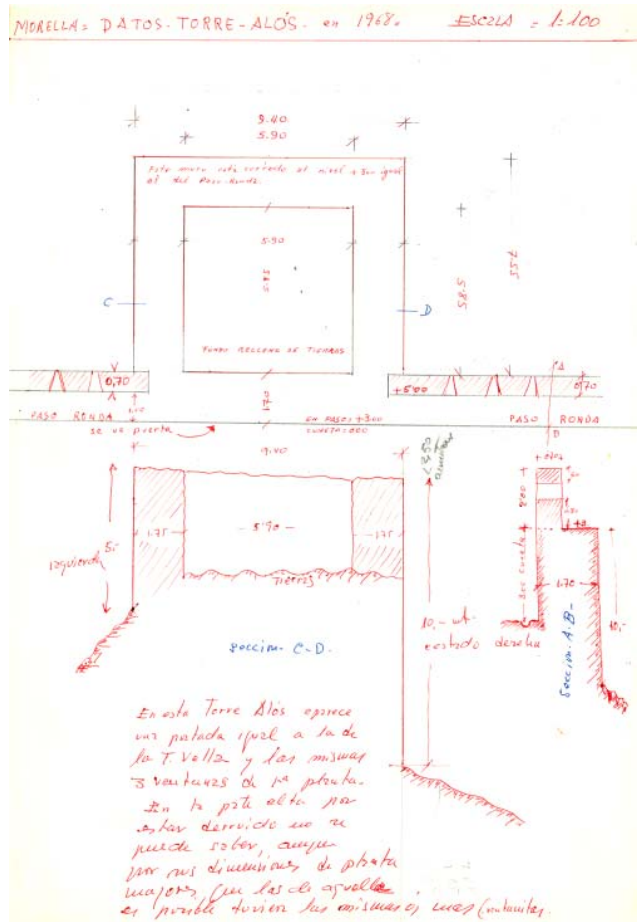 MORELLA= DATOS-TORRE-ALÓS. en 1968. ESCALA = 1:100
9.40
5.90
Este muro está cortado al nivel +3,00 igual
al del Paso Ronda.
5.90
5.85
7.55
5.85
C
D
FONDO RELLENO DE TIERRAS
0,70
+5'00
0,70
A
1.70
PASO RONDA
EN PASO: +3,00
PASO RONDA
se ve puerta
CUNETA: 0,00
B
9.40
1.75
5'90
1.75
izquierda 5,-
Tierras
2'00
3,00 cuneta
1.70
10,-
10,- mt.
costado derecha
Sección- C-D.
Sección-A-B-
En esta Torre Alós aparece
una portada igual a la de
la T. Vella y las mismas
3 ventanas de 1ª planta.
En la pte alta por
estar derruido no se
puede saber, aunque
por sus dimensiones de planta
mayores que las de aquella
es posible tuviera las mismas o mas (ventanitas.